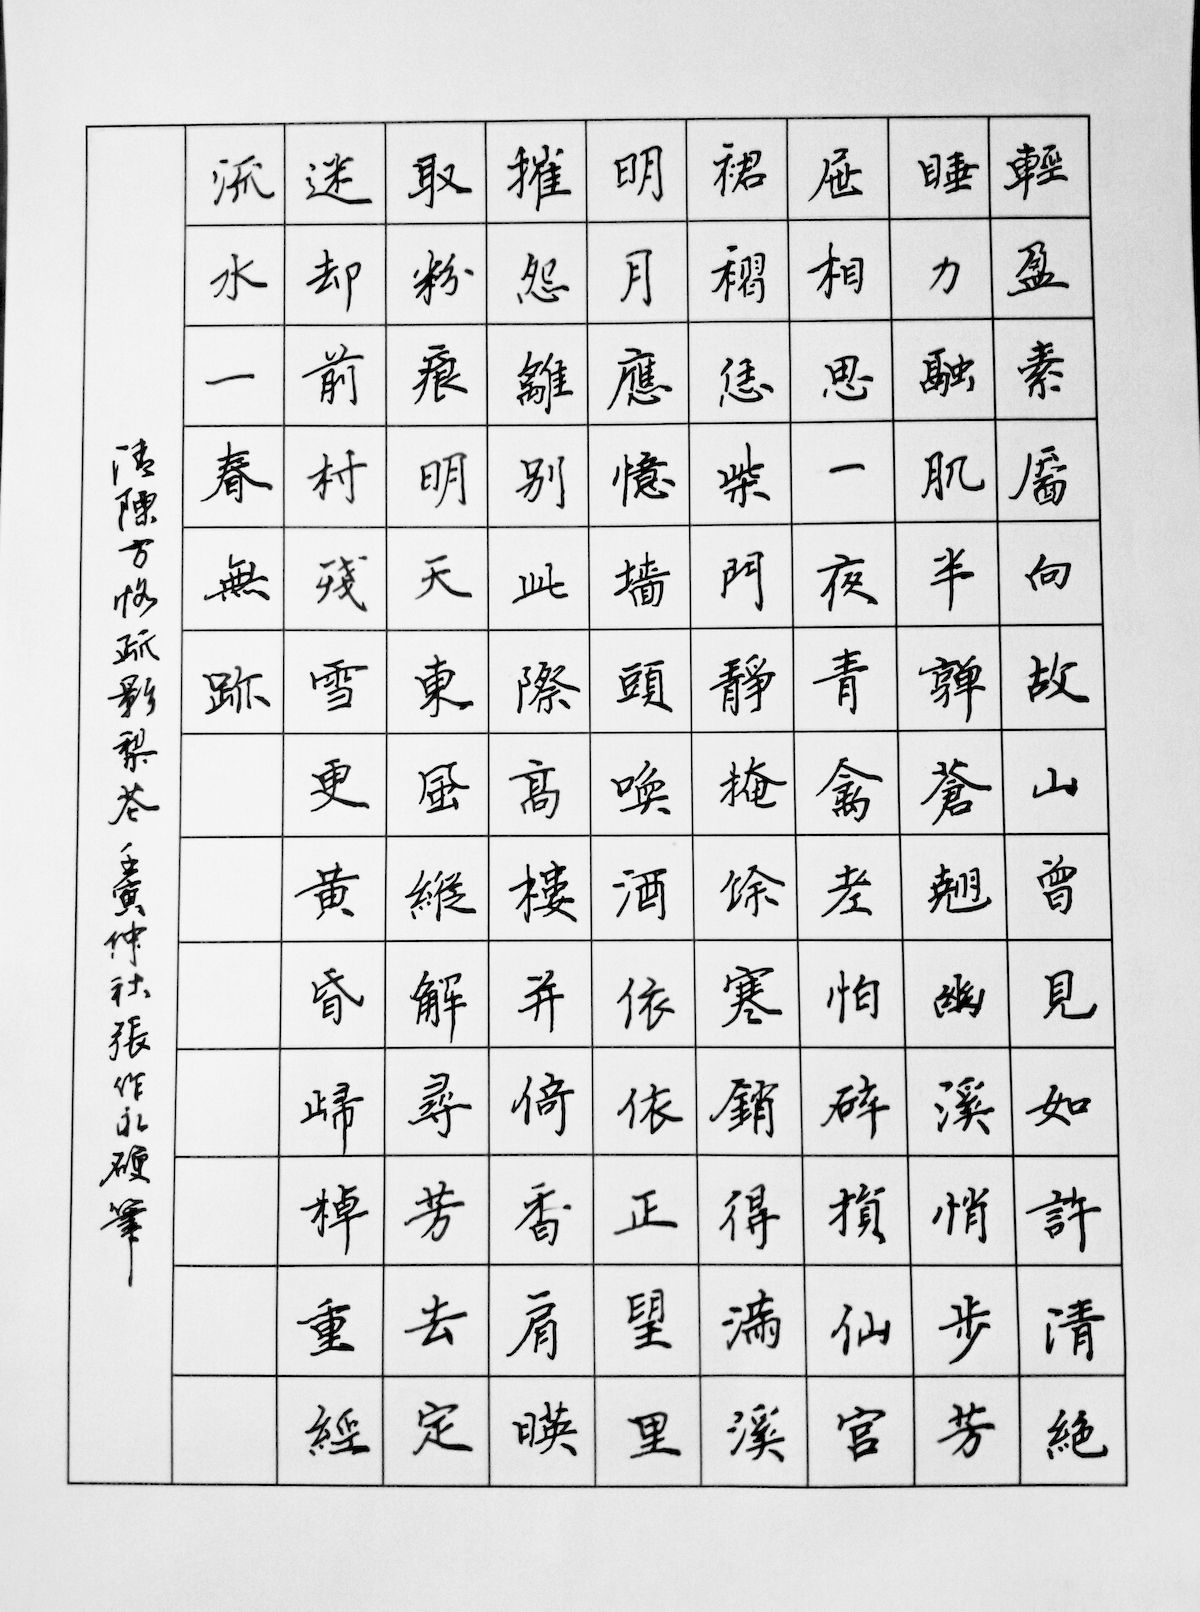 輕盈素靨向故山曾見如許清絶
睡力融肌半嚲蒼翹幽溪悄步芳
屧相思一夜青禽老怕碎損仙宫
裙褶恁柴門靜掩馀寒銷得滿溪
明月應憶墙頭喚酒依依正望里
摧怨離别此際高樓并倚香肩暎
取粉痕明天東風縱解尋芳去定
迷却前村殘雪更黄昏歸棹重經
流水一春無跡
清陳方恪疏影梨花 壬寅仲社張作永硬筆